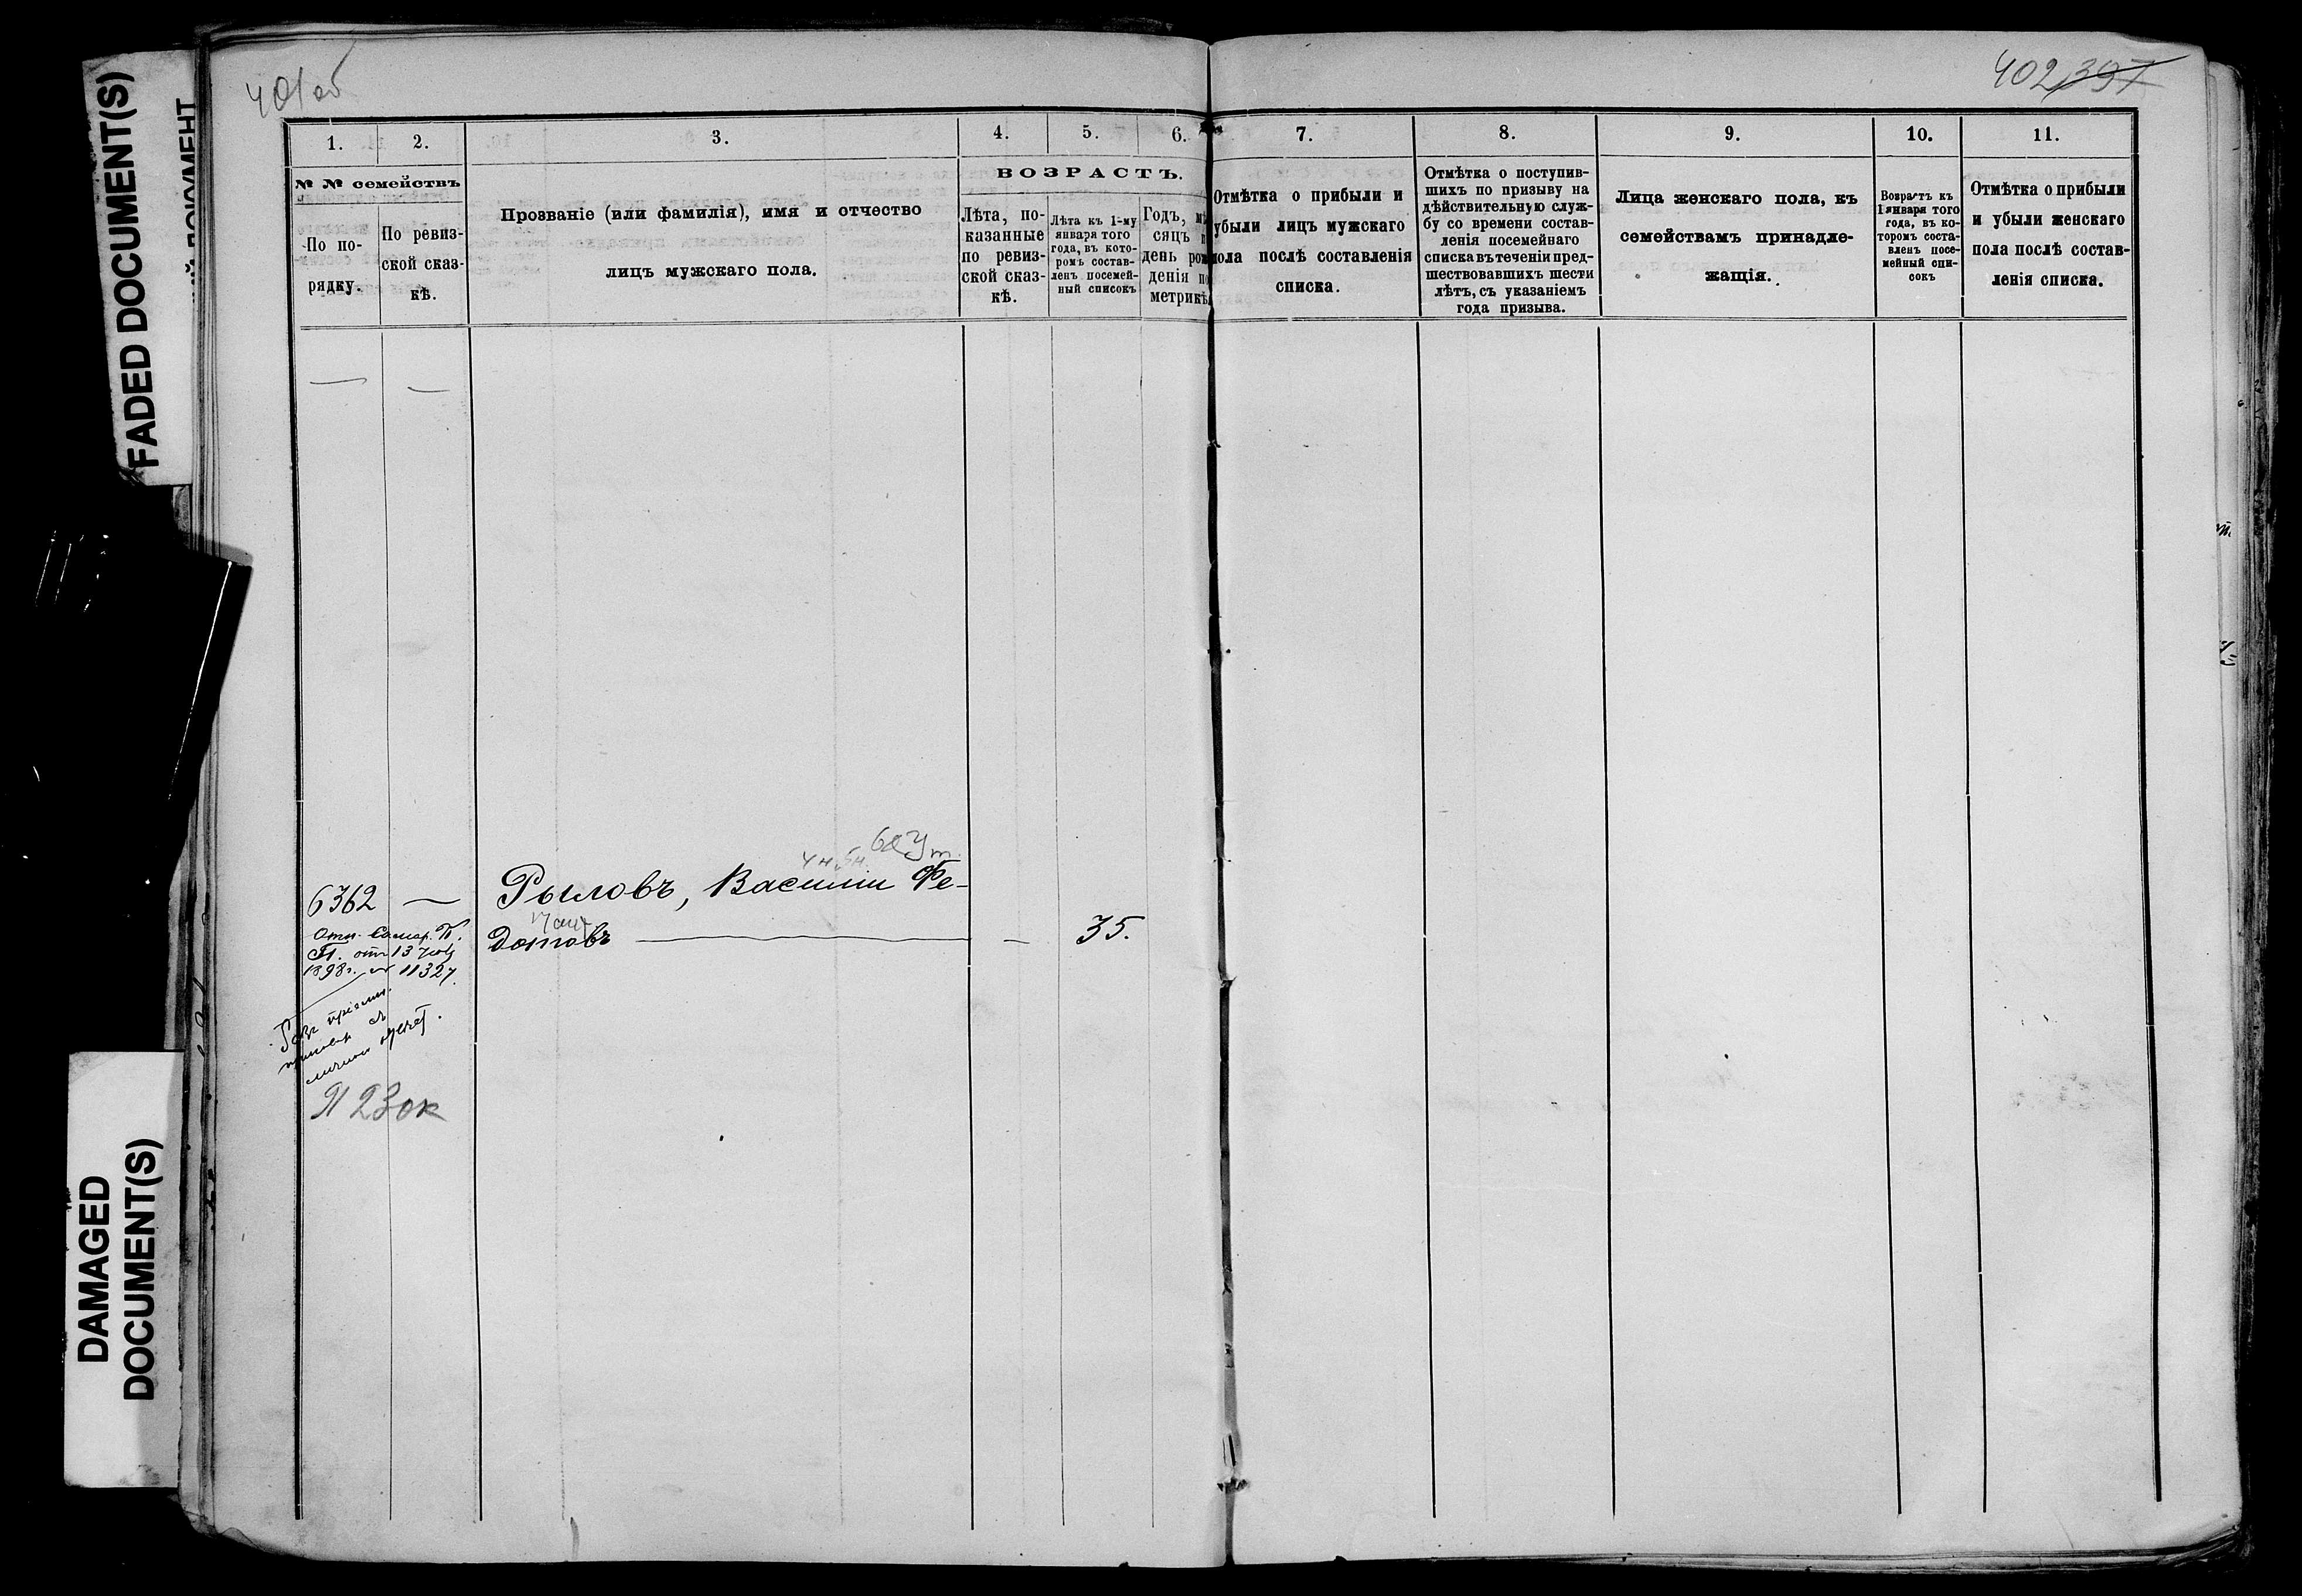 FADED DOCUMENT(S)
DAMAGED
DOCUMENT(S)
401об
402 397
1.
2.
3.
4.
5.
6.
7.
8.
9.
10.
11.
№ № семействъ
По по-
рядку.
По ревиз-
ской сказ-
кѣ.
Прозваніе (или фамилія), имя и отчество
лицъ мужскаго пола.
ВОЗРАСТЪ.
Лѣта, по-
казанные
по ревиз-
ской сказ-
кѣ.
Лѣта къ 1-му
января того
года, въ кото-
ромъ состав-
ленъ посемей-
ный списокъ
Годъ, мѣ
сяцъ и
день рож
денія по
метрикѣ.
Отмѣтка о прибыли и
убыли лицъ мужскаго
пола послѣ составленія
списка.
Отмѣтка о поступив-
шихъ по призыву на
дѣйствительную служ-
бу со времени состав-
ленія посемейнаго
списка въ теченіи пред-
шествовавшихъ шести
лѣтъ, съ указаніемъ
года призыва.
Лица женскаго пола, къ
семействамъ принадле-
жащія.
Возрастъ къ
1 января того
года, въ ко-
торомъ соста-
вленъ посе-
мейный спи-
сокъ
Отмѣтка о прибыли
и убыли женскаго
пола послѣ состав-
ленія списка.
6362 — Рыловъ, Василий Фе-
дотовъ — — 35.
Отн. Самар. К.
П. от 13
1898г. № 11327.